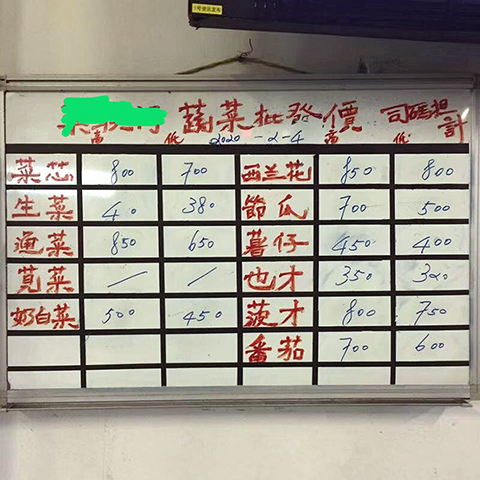 蔬菜批發價 司碼担計
高 低 2020-2-4 高 低
菜芯 800 700 西兰花 850 800
生菜 40 380 節瓜 700 500
通菜 850 650 薯仔 450 400
莧菜 / / 也才 350 320
奶白菜 500 450 菠才 800 750
番茄 700 600